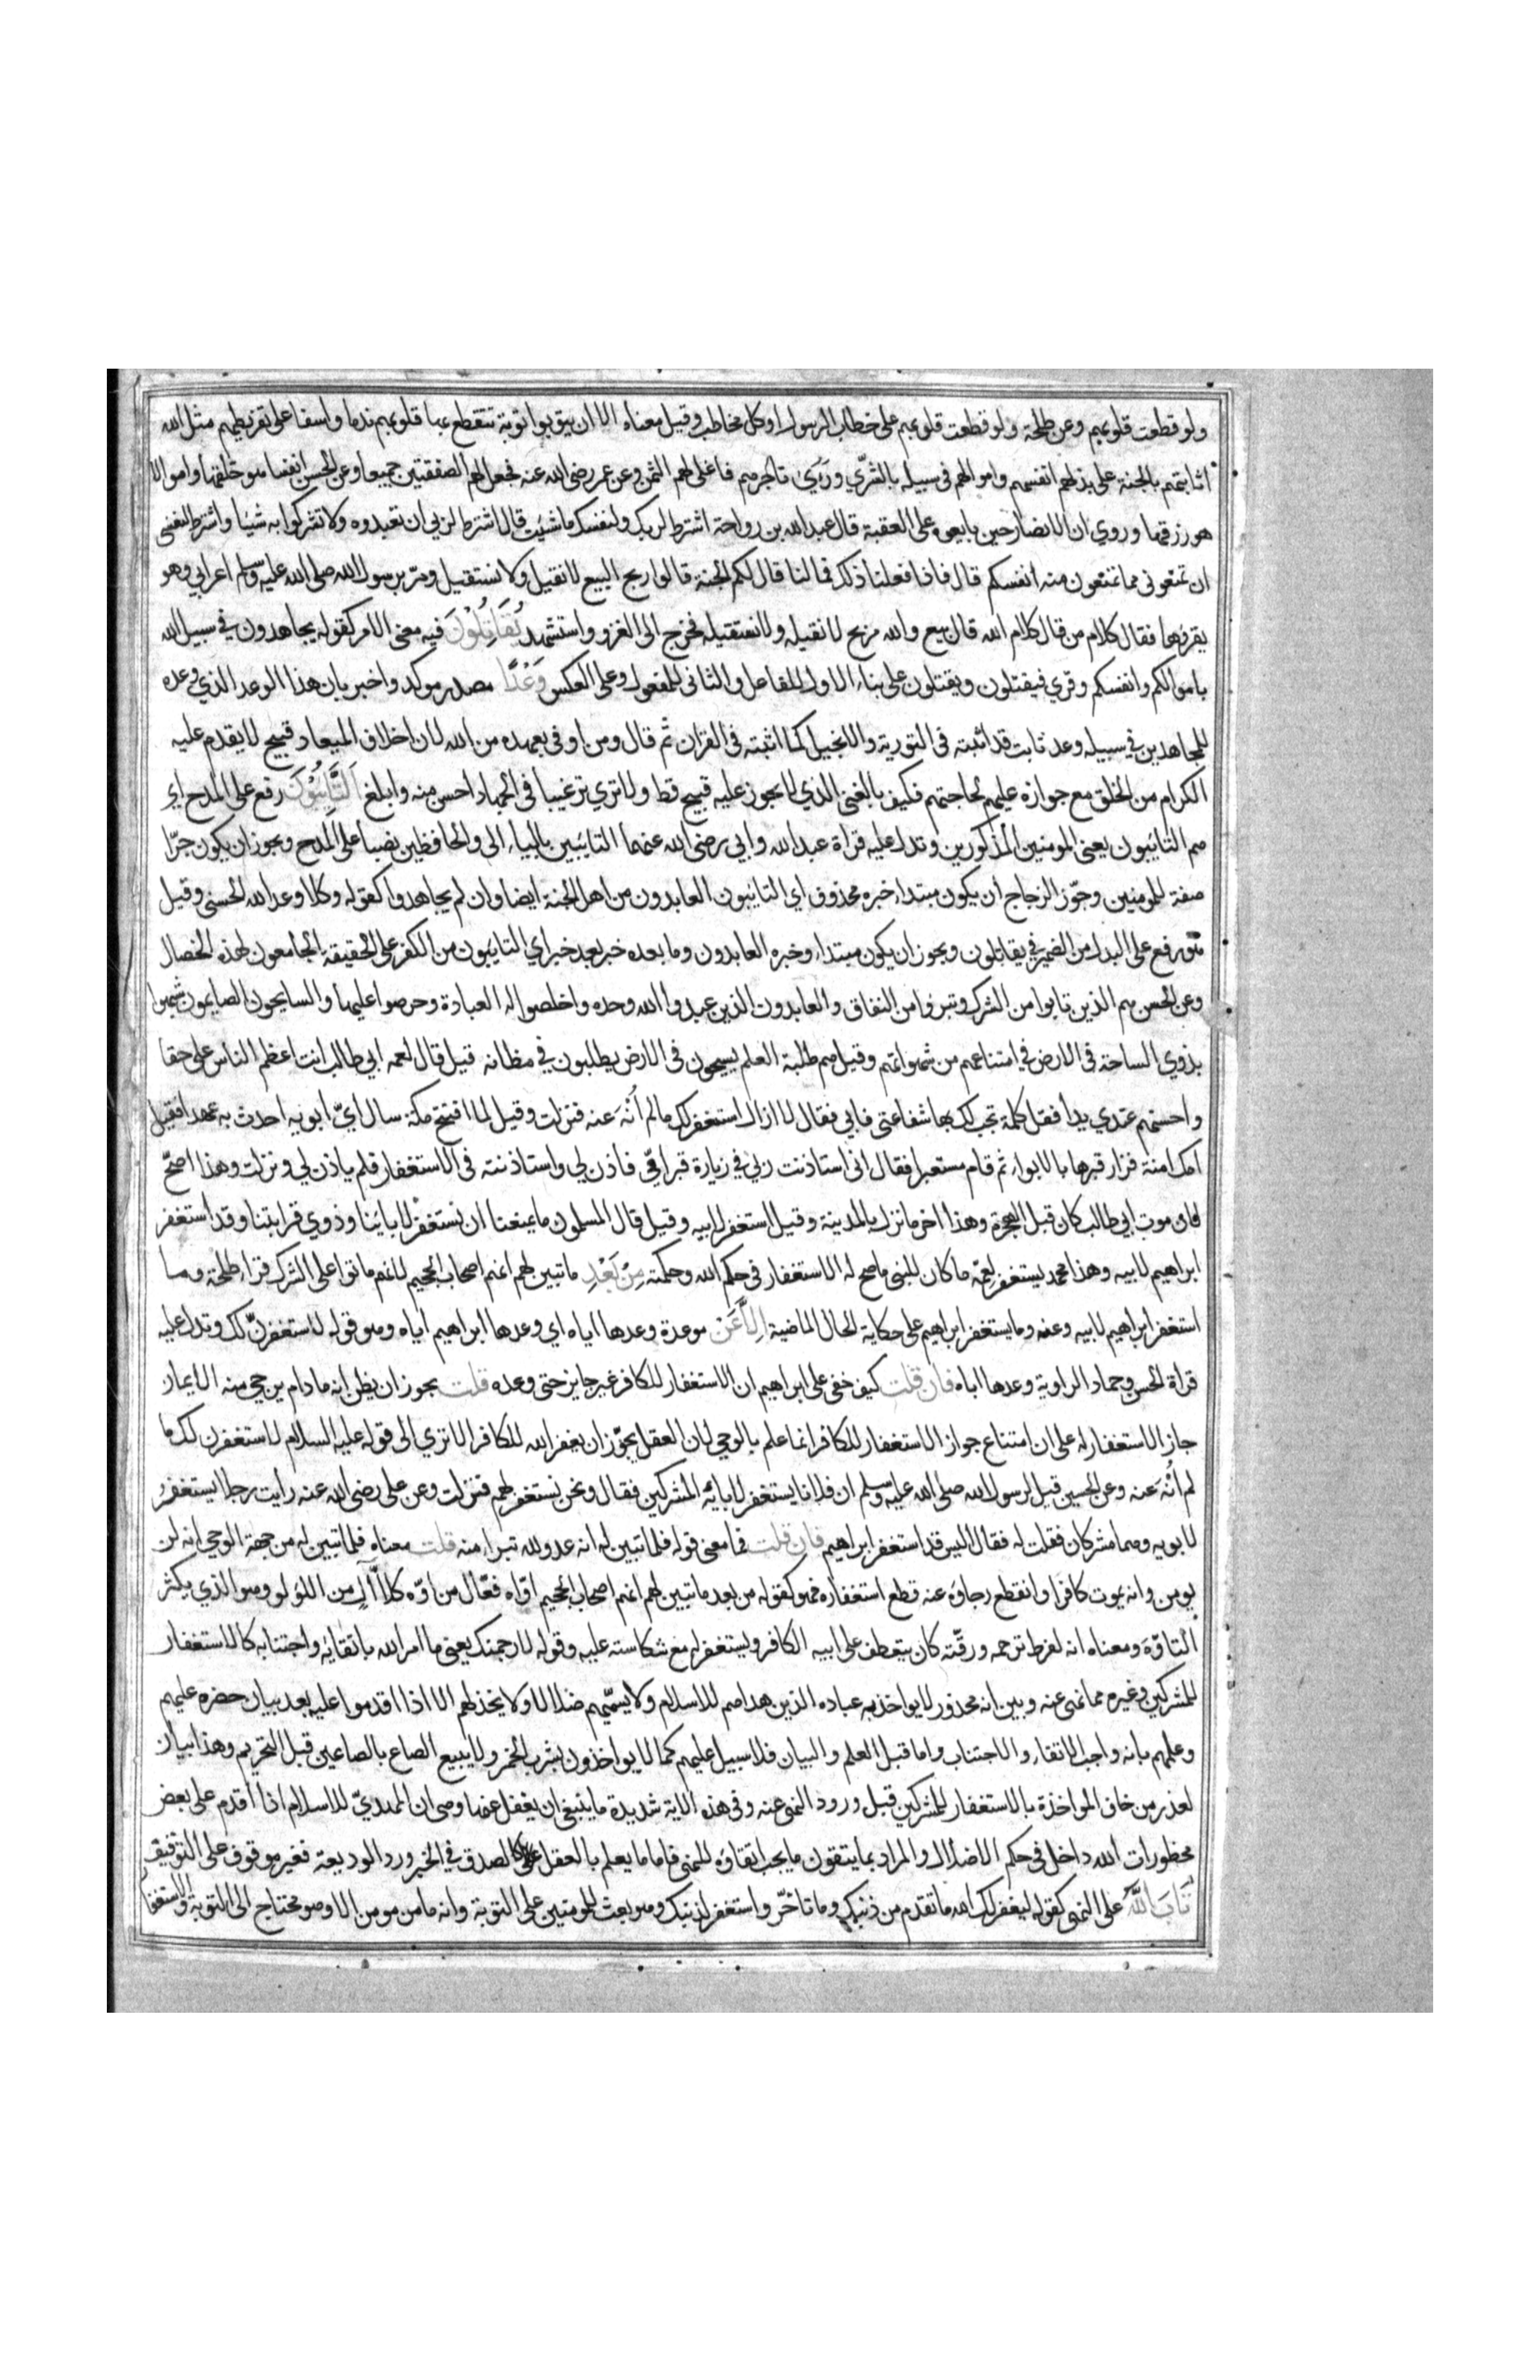 ولو قطعت قلوبهم وعن طلحة ولو قطعت قلوبهم على خطاب الرسول او كل مخاطب وقيل معناه الا ان يتوبوا توبة تتقطع بها قلوبهم ندما واسفا على تفريطهم مثل الله
اثابتهم بالجنة على بذلهم انفسهم واموالهم فى سبيله بالشرّي وروي تاجرهم فاغلى لهم الثمن وعن عمر رضى الله عنه فجعل لهم الصفقتين جميعا وعن الحسن انفسا هو خلقها واموالا
هو رزقها وروي ان الانصار حين بايعوه على العقبة قال عبدالله بن رواحة اشترط لربك ولنفسك ما شئت قال اشترط لربي ان تعبدوه ولا تشركوا به شيا واشترط لنفسى
ان تمنعونى مما تمنعون منه انفسكم قال فاذا فعلنا ذلك فما لنا قال لكم الجنة قالوا ربح البيع لا نقيل ولا نستقيل ومرّ برسول الله صلى الله عليه وسلم اعرابي وهو
يقرؤها فقال كلام من قال كلام الله قال بيع والله مربح لا نقيله ولا نستقيله فخرج الى الغزو واستشهد يُقَاتِلُونَ فيه معنى الامر كقوله يجاهدون في سبيل الله
باموالكم وانفسكم وقري فيقتلون ويقتلون على بناء الاول للفاعل والثانى للمفعول وعلى العكس وَعْدًا مصدر موكد واخبر بان هذا الوعد الذي وعده
للمجاهدين في سبيله وعد ثابت قد اثبته فى التورية والانجيل كما اثبته فى القران ثم قال ومن اوفى بعهده من الله لان اخلاف الميعاد قبيح لا يقدم عليه
الكرام من الخلق مع جوازه عليهم لحاجتهم فكيف بالغنى الذي لا يجوز عليه قبيح قط ولا تري ترغيبا فى الجهاد احسن منه وابلغ اَلتَّائِبُونَ رفع على المدح اي
هم التائبون يعنى المومنين المذكورين وتدل عليه قراة عبدالله وابي رضى الله عنهما التائبين بالياء الى والحافظين نصبا على المدح ويجوز ان يكون جرّا
صفة للمومنين وجوّز الزجاج ان يكون مبتداء خبره محذوف اي التائبون العابدون من اهل الجنة ايضا وان لم يجاهدوا كقوله وكلا وعد الله الحسنى وقيل
هو رفع على البدل من الضمير في يقاتلون ويجوز ان يكون مبتداء وخبره العابدون وما بعده خبر بعد خبر اي التائبون من الكفر على الحقيقة الجامعون لهذه الخصال
وعن الحسن هم الذين تابوا من الشرك وتبروا من النفاق والعابدون الذين عبدوا الله وحده واخلصوا له العبادة وحرصوا عليها والسايحون الصايمون شبهوا
بذوي السياحة فى الارض في امتناعهم من شهواتهم وقيل هم طلبة العلم يسيحون فى الارض يطلبون في مظانه قيل قال لعمه ابي طالب انت اعظم الناس على حقا
واحسنهم عندي يدا فقل كلمة تجب لك بها شفاعتى فابي فقال لا ازال استغفر لك ما لم اُنْهَ عنه فنزلت وقيل لما افتتح مكة سال ايّ ابويه احدث به عهدا فقيل
امك امنة فزار قبرها بالابواء ثم قام مستعبرا فقال انى استاذنت ربي في زيارة قبر امّى فاذن لي واستاذنته فى الاستغفار فلم ياذن لي ونزلت وهذا اصحّ
لان موت ابي طالب كان قبل الهجرة وهذا اخر ما نزل بالمدينة وقيل استغفر لابيه وقيل قال المسلمون ما يمنعنا ان نستغفر لابائنا وذوي قرابتنا وقد استغفر
ابراهيم لابيه وهذا محمد يستغفر لعمّه ما كان للنبى ما صح له الاستغفار فى حكم الله وحكمته مِنْ بَعْدِ ما تبين لهم انهم اصحاب الجحيم لانهم ماتوا على الشرك قراء طلحة وما
استغفر ابراهيم لابيه وعنه وما يستغفر ابراهيم على حكاية الحال الماضية اِلَّا عَنْ موعدة وعدها اياه اي وعدها ابراهيم اياه وهو قوله لاستغفرنّ لك وتدل عليه
قراة الحسن وحماد الراوية وعدها اباه فان قلت كيف خفى على ابراهيم ان الاستغفار للكافر غير جايز حتى وعده قلت يجوز ان يظن انه ما دام يرجي منه الايمان
جاز الاستغفار له على ان امتناع جواز الاستغفار للكافر انما علم بالوحي لان العقل يجوّز ان يغفر الله للكافر الا تري الى قوله عليه السلام لاستغفرن لك ما
لم اُنْهَ عنه وعن الحسين قيل لرسول الله صلى الله عليه وسلم ان فلانا يستغفر لابائه المشركين فقال ونحن نستغفر لهم فنزلت وعن على رضى الله عنه رايت رجلا يستغفر
لابويه وهما مشركان فقلت له فقال اليس قد استغفر ابراهيم فان قلت فما معنى قوله فلما تبين له انه عدو لله تبراء منه قلت معناه فلما تبين له من جهة الوحي انه لن
يومن وانه يموت كافرا وانقطع رجاوه عنه قطع استغفاره فهو كقوله من بعد ما تبين لهم انهم اصحاب الجحيم اوّاه فعّال من اوّه كلاّٰل من اللولو وهو الذي يكثر
التاوّه ومعناه انه لفرط ترحمه ورقّته كان يتعطف على ابيه الكافر ويستغفر له مع شكاسته عليه وقوله لارجمنك يعنى ما امر الله باتقائه واجتنابه كالاستغفار
للمشركين وغيره مما نهى عنه وبين انه محذور لا يواخذ به عباده الذين هداهم للاسلام ولا يسمّيهم ضلالا ولا يخذلهم الا اذا اقدموا عليه بعد بيان حضره عليهم
وعلمهم بانه واجب الاتقاء والاجتناب واما قبل العلم والبيان فلا سبيل عليهم كما لا يواخذون بشرب الخمر ولا ببيع الصاع بالصاعين قبل التحريم وهذا بيان
لعذر من خاف المواخذة بالاستغفار للمشركين قبل ورود النهى عنه وفى هذه الاية شديدة ما ينبغى ان يغفل عنها وهى ان المهديّ للاسلام اذا اقدم على بعض
محظورات الله داخل فى حكم الاضلال والمراد بما يتقون ما يجب اتقاوه للنهى فاما ما يعلم بالعقل كالصدق في الخبر ورد الوديعة فغير موقوف على التوقيف
تَابَ اللَّهُ على النبى كقوله ليغفر لك الله ما تقدم من ذنبك وما تاخّر واستغفر لذنبك وهو بعث للمومنين على التوبة وانه ما من مومن الا وهو محتاج الى التوبة والاستغفار